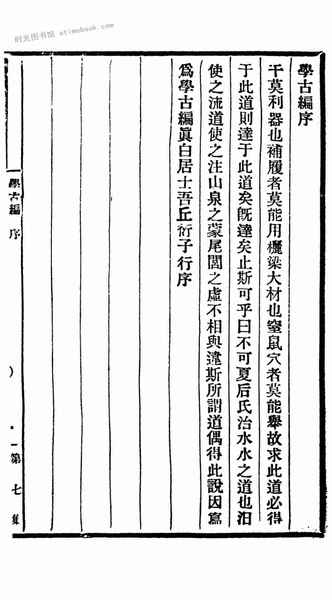 时光图书馆 etimebook.com
學古編序
干莫利器也補履者莫能用欐梁大材也窒鼠穴者莫能舉故求此道必得
于此道則達于此道矣旣達矣止斯可乎曰不可夏后氏治水水之道也汩
使之流道使之注山泉之蒙尾閭之虛不相與違斯所謂道偶得此説因寫
爲學古編眞白居士吾丘衍子行序
學古編 序
一 第七集